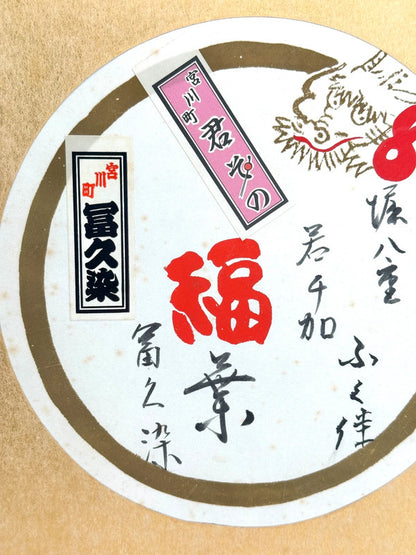 堀八重
ふく佳
若千加
福葉
冨久染
宮川町 君その
宮川町 冨久染